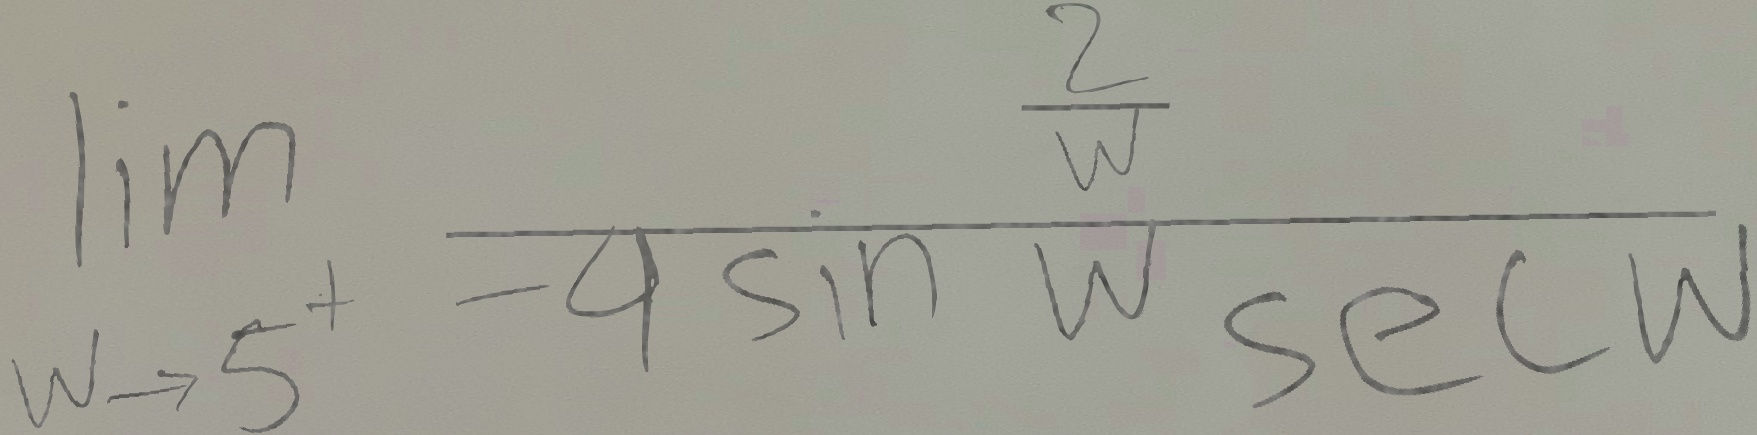 \lim_{w \to 5^+} \frac{\frac{2}{w}}{-4 \sin w \sec w}